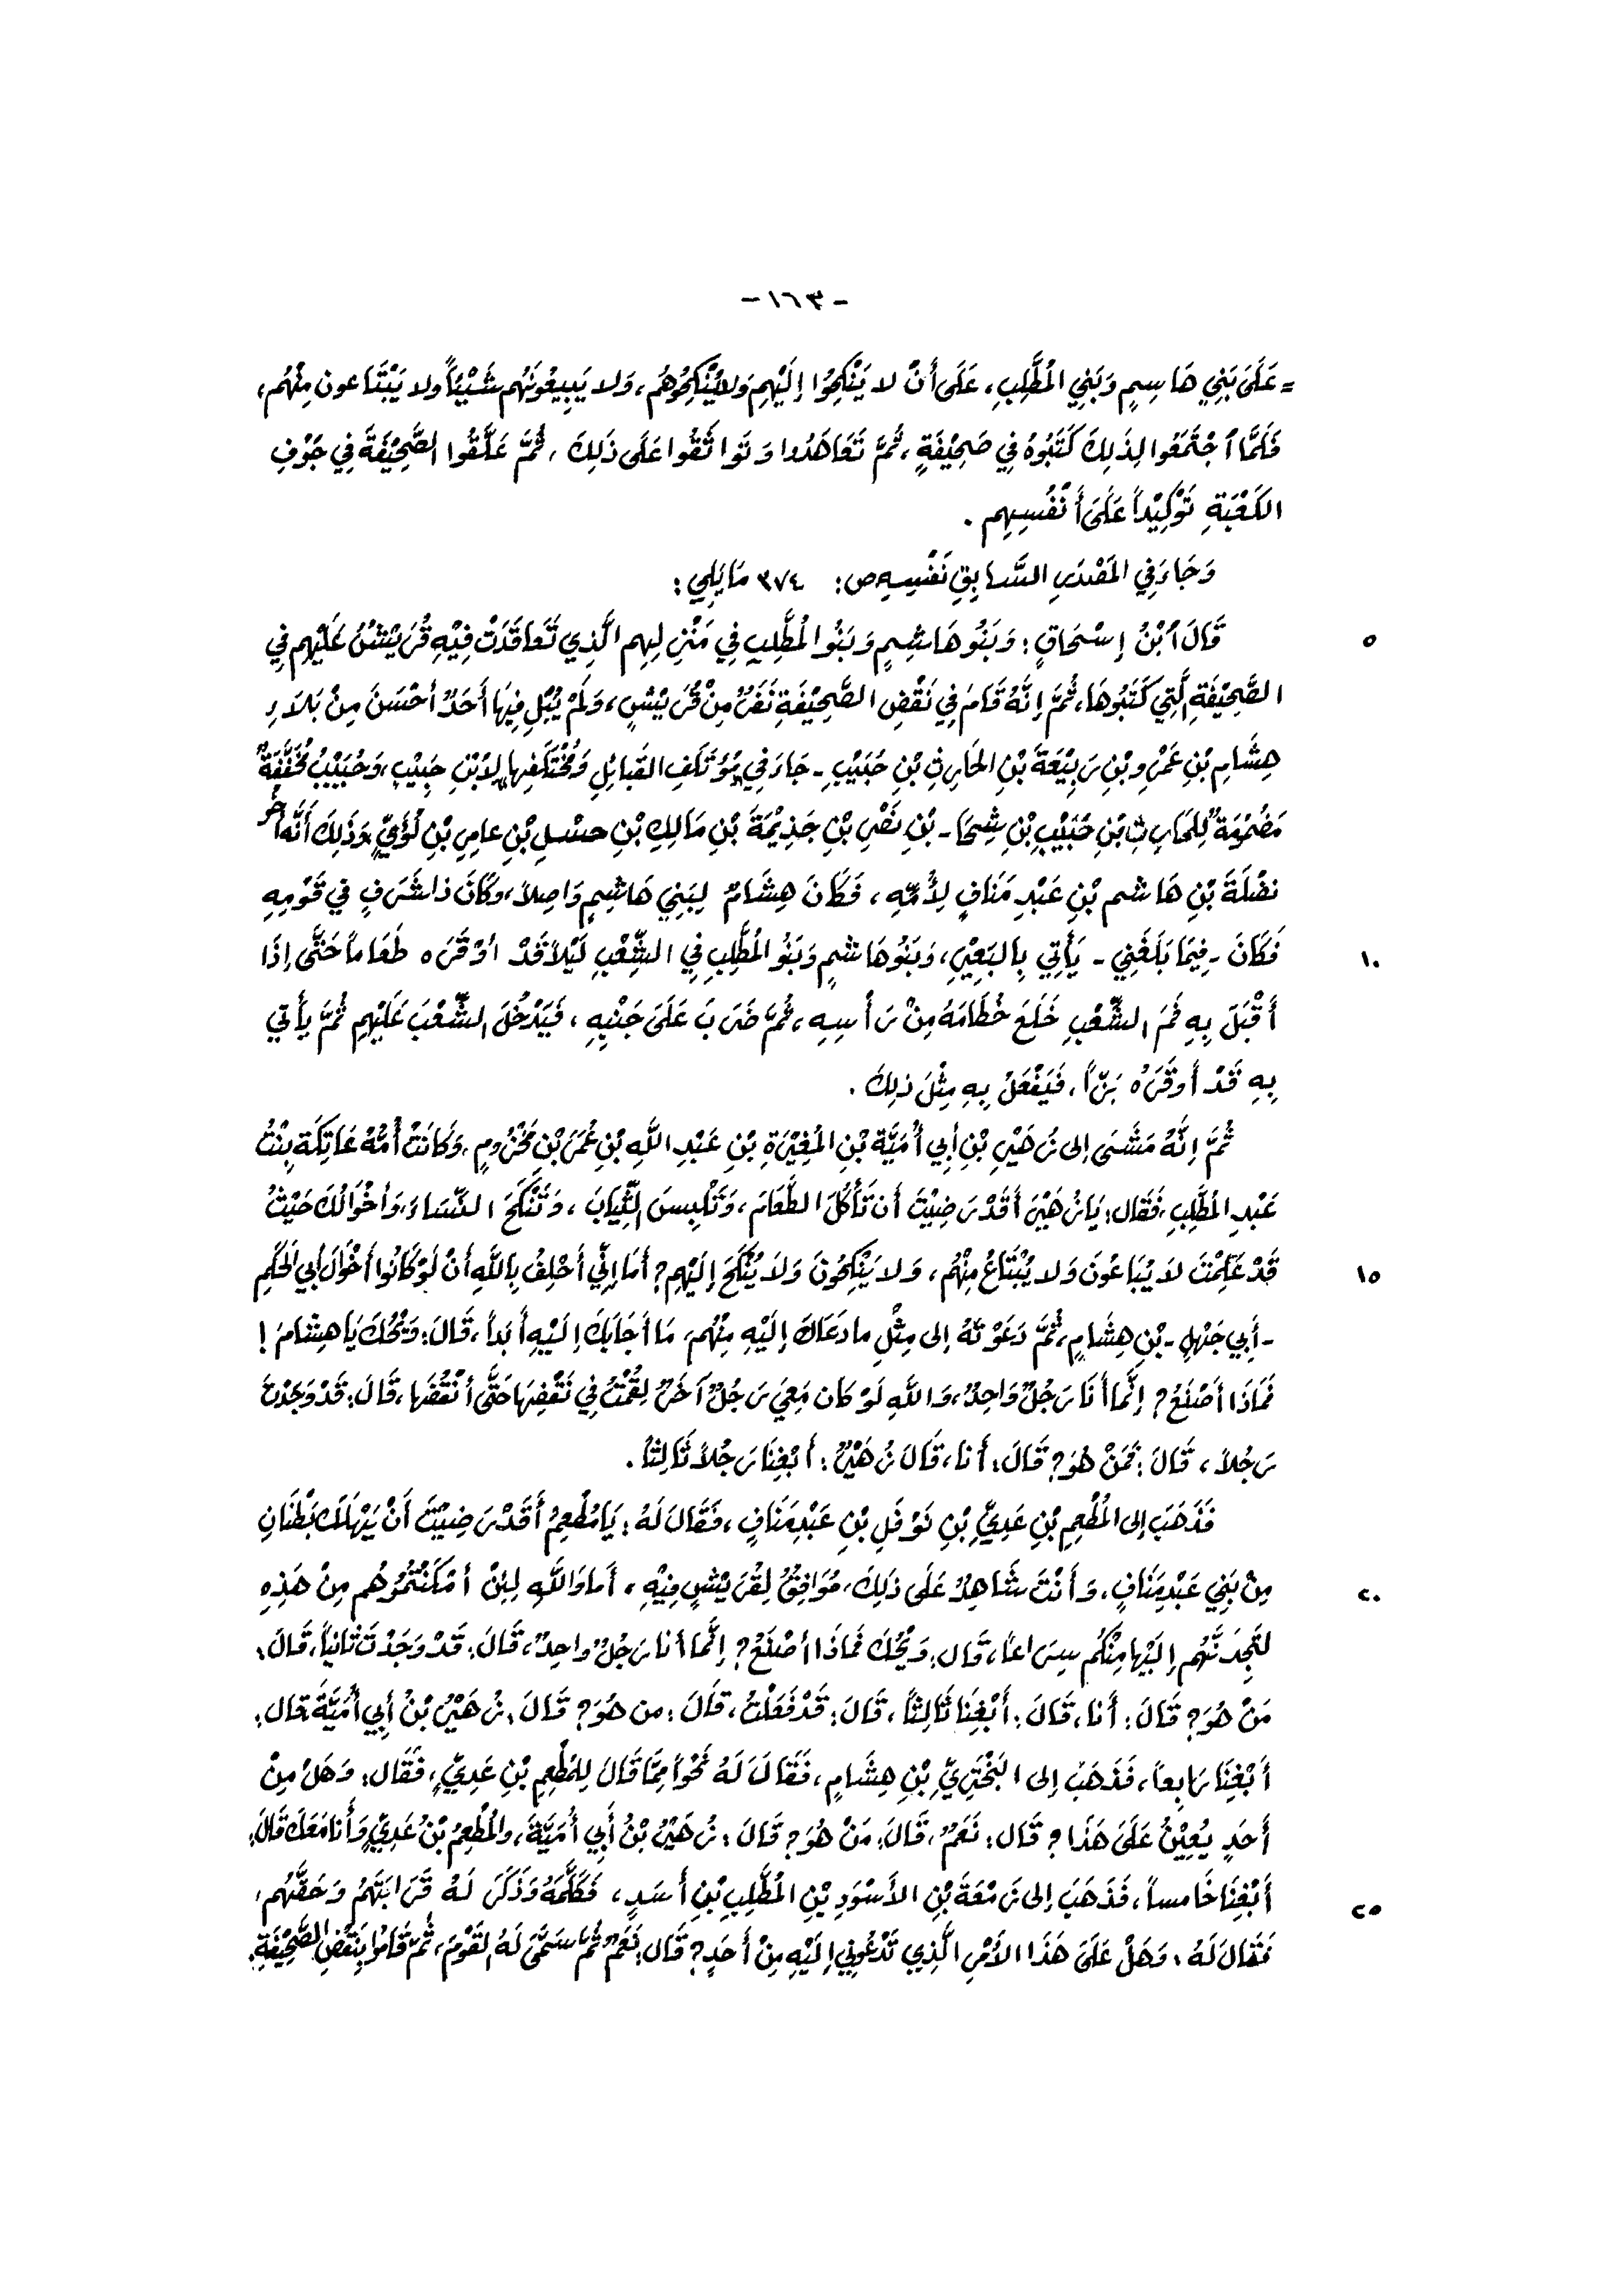 - ١٦٣ -
= عَلَى بَنِي هَاشِمٍ وَبَنِي المُطَّلِبِ، عَلَى أَنْ لا يَنْكِحُوا إِلَيْهِم وَلا يُنْكِحُوهُم، وَلا يَبِيعُونَهُم شَيْئاً ولا يَبْتَاعون مِنْهُم،
فَلَمَّا ٱجْتَمَعُوا لِذَلِكَ كَتَبُوهُ فِي صَحِيْفَةٍ، ثُمَّ تَعَاهَدُوا وَتَوَاثَقُوا عَلَى ذَلِكَ، ثُمَّ عَلَّقُوا الصَّحِيْفَةَ فِي جَوْفِ
الكَعْبَةِ تَوْكِيْداً عَلَى أَنْفُسِهِم .
وَجَاءَ فِي المَصْدَرِ السَّابِقِ نَفْسِهِ ص: ٣٧٤ مَا يَلِي:
٥ قَالَ ٱبْنُ إِسْحَاقٍ: وَبَنُو هَاشِمٍ وَبَنُو المُطَّلِبِ فِي مَنْزِلِهِم الَّذِي تَعَاقَدَتْ فِيْهِ قُرَيْشُ عَلَيْهِم فِي
الصَّحِيْفَةِ الَّتِي كَتَبُوهَا، ثُمَّ إِنَّهُ قَامَ فِي نَقْضِ الصَّحِيْفَةِ نَفَرٌ مِنْ قُرَيْشٍ، وَلَمْ يُبْلِ فِيهَا أَحَدٌ أحْسَنَ مِنْ بَلاءِ
هِشَامِ بْنِ عَمْرِو بْنِ رَبِيْعَةَ بْنِ الحَارِثِ بْنِ حُبَيْبِ - جَاءَ فِي مُؤتَلَفِ القَبائِلِ وَمُخْتَلَفِهَا لِابْنِ حَبِيْبٍ، وَحُبَيْبُ مُخَفَّفَةٌ
مَضْمُوْمَةٌ لِلحَارِثِ بْنِ حُبَيْبِ بْنِ شِحَا - بْنِ نَصْرِ بْنِ جَذِيْمَةَ بْنِ مَالِكِ بْنِ حسْلِ بْنِ عامِرِ بْنِ لُؤَيٍّ، وَذَلِكَ أَنَّهُ أخُو
نضْلَةَ بْنِ هَاشم بْنِ عَبْدِ مَنَافٍ لِأُمِّهِ، فَكَانَ هِشَامٌ لِبَنِي هَاشِمٍ وَاصِلاً، وَكَانَ ذا شَرَفٍ في قَوْمِهِ
١٠ فَكَانَ - فِيمَا بَلَغَنِي - يَأتِي بِالبَعِيْرِ، وَبَنُو هَاشمٍ وَبَنُو المُطَّلِبِ فِي الشِّعْبِ لَيْلاً قَدْ أوْقَرَه طَعَاماً حَتَّى إذَا
أَقْبَلَ بِهِ فَمَ الشِّعْبِ خَلَعَ خُطَامَهُ مِنْ رَأْسِهِ، ثُمَّ ضَرَبَ عَلَى جَنْبِهِ، فَيَدْخُلَ الشِّعْبَ عَلَيْهِم ثُمَّ يأْتي
بِهِ قَدْ أَوقَرَهُ بَزّاً، فَيَفْعَلُ بِهِ مِثْلَ ذلِكَ .
ثُمَّ إِنَّهُ مَشَى إلى زُهَيْرِ بْنِ أبي أُمَيَّةَ بْنِ المُغِيْرَةِ بْنِ عَبْدِ اللّهِ بْنِ عُمَرَ بْنِ مَخْزُومٍ، وَكَانَتْ أُمُّهُ عَاتِكَةَ بِنْتُ
عَبْدِ المُطَّلِبِ، فَقَال: يَا زُهَيْرَ أَقَدْ رَضِيْتَ أن تَأْكُلَ الطَّعَامَ، وَتَلْبِسَ الثِّيَابَ، وَتَنْكَحَ النِّسَاءَ، وَأخْوَالُكَ حَيْثُ
١٥ قَدْ عَلِمْتَ لا يُبَاعُونَ وَلا يُبْتَاعُ مِنْهُم، وَلا يَنْكِحُونَ وَلا يُنْكَحَ إِلَيْهِم؟ أمَا إنِّي أَحْلِفُ بِاللَّهِ أنْ لَوْ كَانُوا أَخْوَالَ أبي الحَكَمِ
- أَبِي جَهْلٍ - بْنِ هِشَامٍ، ثُمَّ دَعَوْتَهُ إلى مِثْلِ ما دَعَاكَ إلَيْهِ مِنْهُم، مَا أجَابَكَ إلَيْهِ أَبَداً، قَالَ: وَيْحُكَ يَا هِشَامُ !
فَمَاذَا أَصْنَعُ؟ إنَّمَا أَنَا رَجُلٌ وَاحِدٌ، وَاللَّهِ لَوْ كَان مَعِيَ رَجُلٌ آخَرٌ لقُمْتُ فِي نَقْضِهَا حَتَّى أنْقُضَهَا، قَالَ: قَدْ وَجَدْتَ
رَجُلاً، قَالَ: فَمَنْ هُوَ؟ قَالَ: أَنا، قَالَ زُهَيْرٌ: أبْغِنَا رَجُلاً ثَالِثاً .
فَذَهَبَ إلى المُطْعِمِ بْنِ عَدِيِّ بْنِ نَوْفَلِ بْنِ عَبْدِ مَنَافٍ، فَقَالَ لَهُ: يَا مُطْعِمُ أَقَدْ رَضِيْتَ أَنْ يَهْلَكَ بَطْنَانِ
٢٠ مِنْ بَنِي عَبْدِ مَنَافٍ، وَأنْتَ شَاهِدٌ عَلَى ذلِكَ، مُوَافِقٌ لِقُرَيْشٍ فِيْهِ، أَما وَاللَّهِ لِئِنْ أمْكَنْتُمُوْهُم مِنْ هَذِهِ
لتَجِدَنَّهُم إلَيْها مِنْكُم سِرَاعاً، قَال: وَيْحُكَ فَمَاذَا أصْنَعُ؟ إنَّما أنا رَجُلٌ واحِدٌ، قَالَ: قَدْ وَجَدْتَ ثَانياً، قَالَ:
مَنْ هُوَ؟ قَالَ: أَنا، قَالَ: أَبْغِنَا ثَالِثاً، قَالَ: قَدْ فَعَلْتُ، قَالَ: من هُوَ؟ قَالَ: زُهَيْرُ بْنُ أَبِي أُمَيَّةَ، قال:
أَبْغِنَا رَابِعاً، فَذَهَبَ إلى البَخْتَرِيِّ بْنِ هِشَامٍ، فَقَالَ لَهُ نَحْواً مِمَّا قَالَ لِلمُطْعِمِ بْنِ عَدِيٍّ، فَقَال: وَهَلْ مِنْ
أَحَدٍ يُعِيْنُ عَلَى هَذَا؟ قَال: نَعَمْ، قَالَ: مَنْ هُوَ؟ قَالَ: زُهَيْرُ بْنُ أَبِي أُمَيَّةَ، والمُطْعِمُ بْنُ عَدِيٍّ وَأَنا مَعَكَ قَالَ:
أَبْغِنَا خَامساً، فَذَهَبَ إلى زَمْعَةَ بْنِ الأَسْوَدِ بْنِ المُطَّلِبِ بْنِ أَسَدٍ، فَكَلَّمَهُ وَذَكَرَ لَهُ قَرَابَتَهُمْ وَحَقَّهُم،
٢٥ فَقَالَ لَهُ: وَهَلْ عَلَى هَذَا الأَمْرِ الَّذِي تَدْعُونِي إِلَيْهِ مِنْ أَحَدٍ؟ قَال: نَعَمْ ثُمَّ سَمَّى لَهُ القَوْمَ، ثُمَّ قَامُوا بِنَقْضِ الصَّحِيْفَةِ.